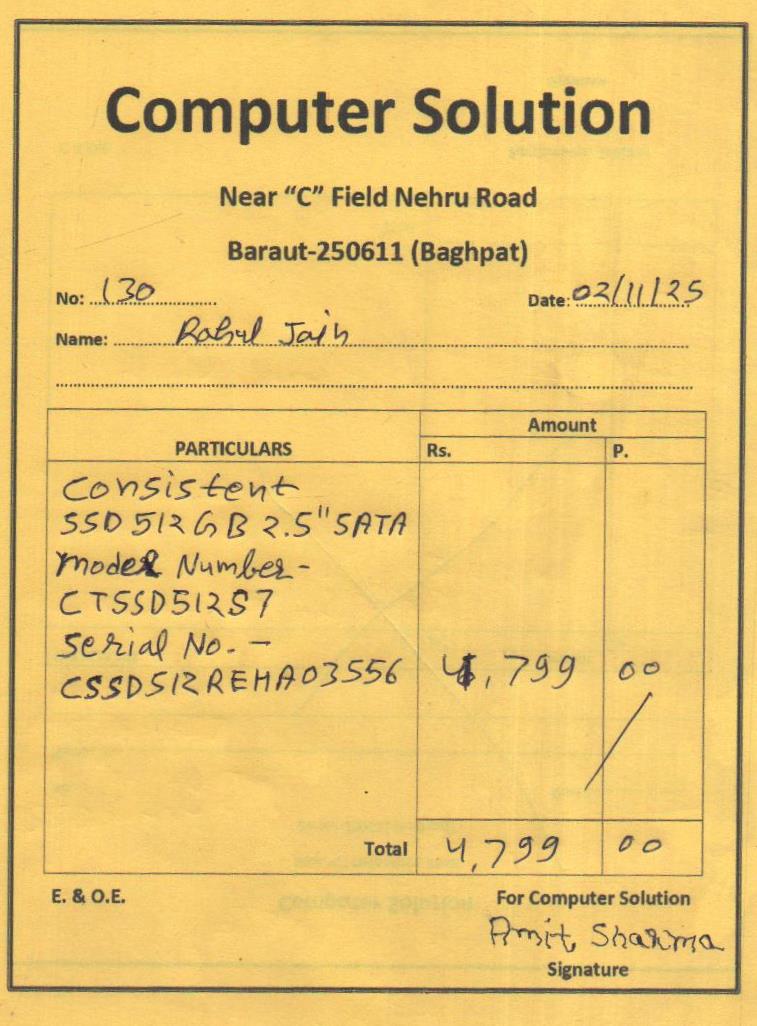 Computer Solution
Near “C” Field Nehru Road
Baraut-250611 (Baghpat)
No: 130 Date: 02/11/25
Name: Rahul Jain
PARTICULARS Amount
Rs. P.
Consistent
SSD 512 GB 2.5" SATA
Model Number -
CTSSD512S7
Serial No. -
CSSD512REHA03556 4,799 00
Total 4,799 00
E. & O.E. For Computer Solution
Amit Sharma
Signature